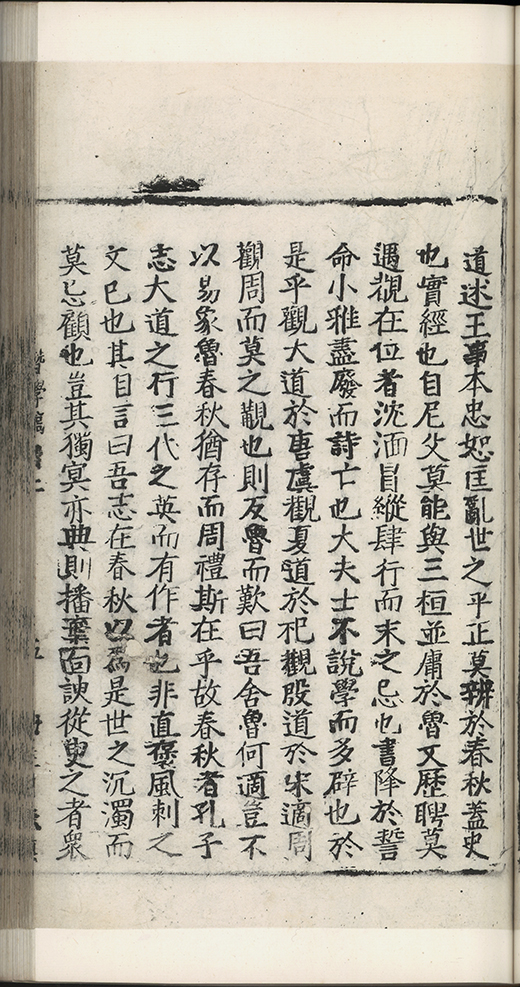 道述王事本忠恕匡亂世之乎正莫辨於春秋蓋史
也實經也自尼父莫能與三桓並庸於魯又歷聘莫
遇覩在位者沈湎冐縱肆行而末之忌也書降於誓
命小雅盡廢而詩亡也大夫士不說學而多辟也於
是乎觀大道於唐虞觀夏道於杞觀殷道於宋適周
觀周而莫之觀也則反魯而歎曰吾舍魯何適豈不
以易象魯春秋猶存而周禮斯在乎故春秋者孔子
志大道之行三代之英而有作者也非直褒風刺之
文已也其自言曰吾志在春秋以為是世之沉濁而
莫忌顧也豈其獨冥亦典則播棄面諛從臾之者衆